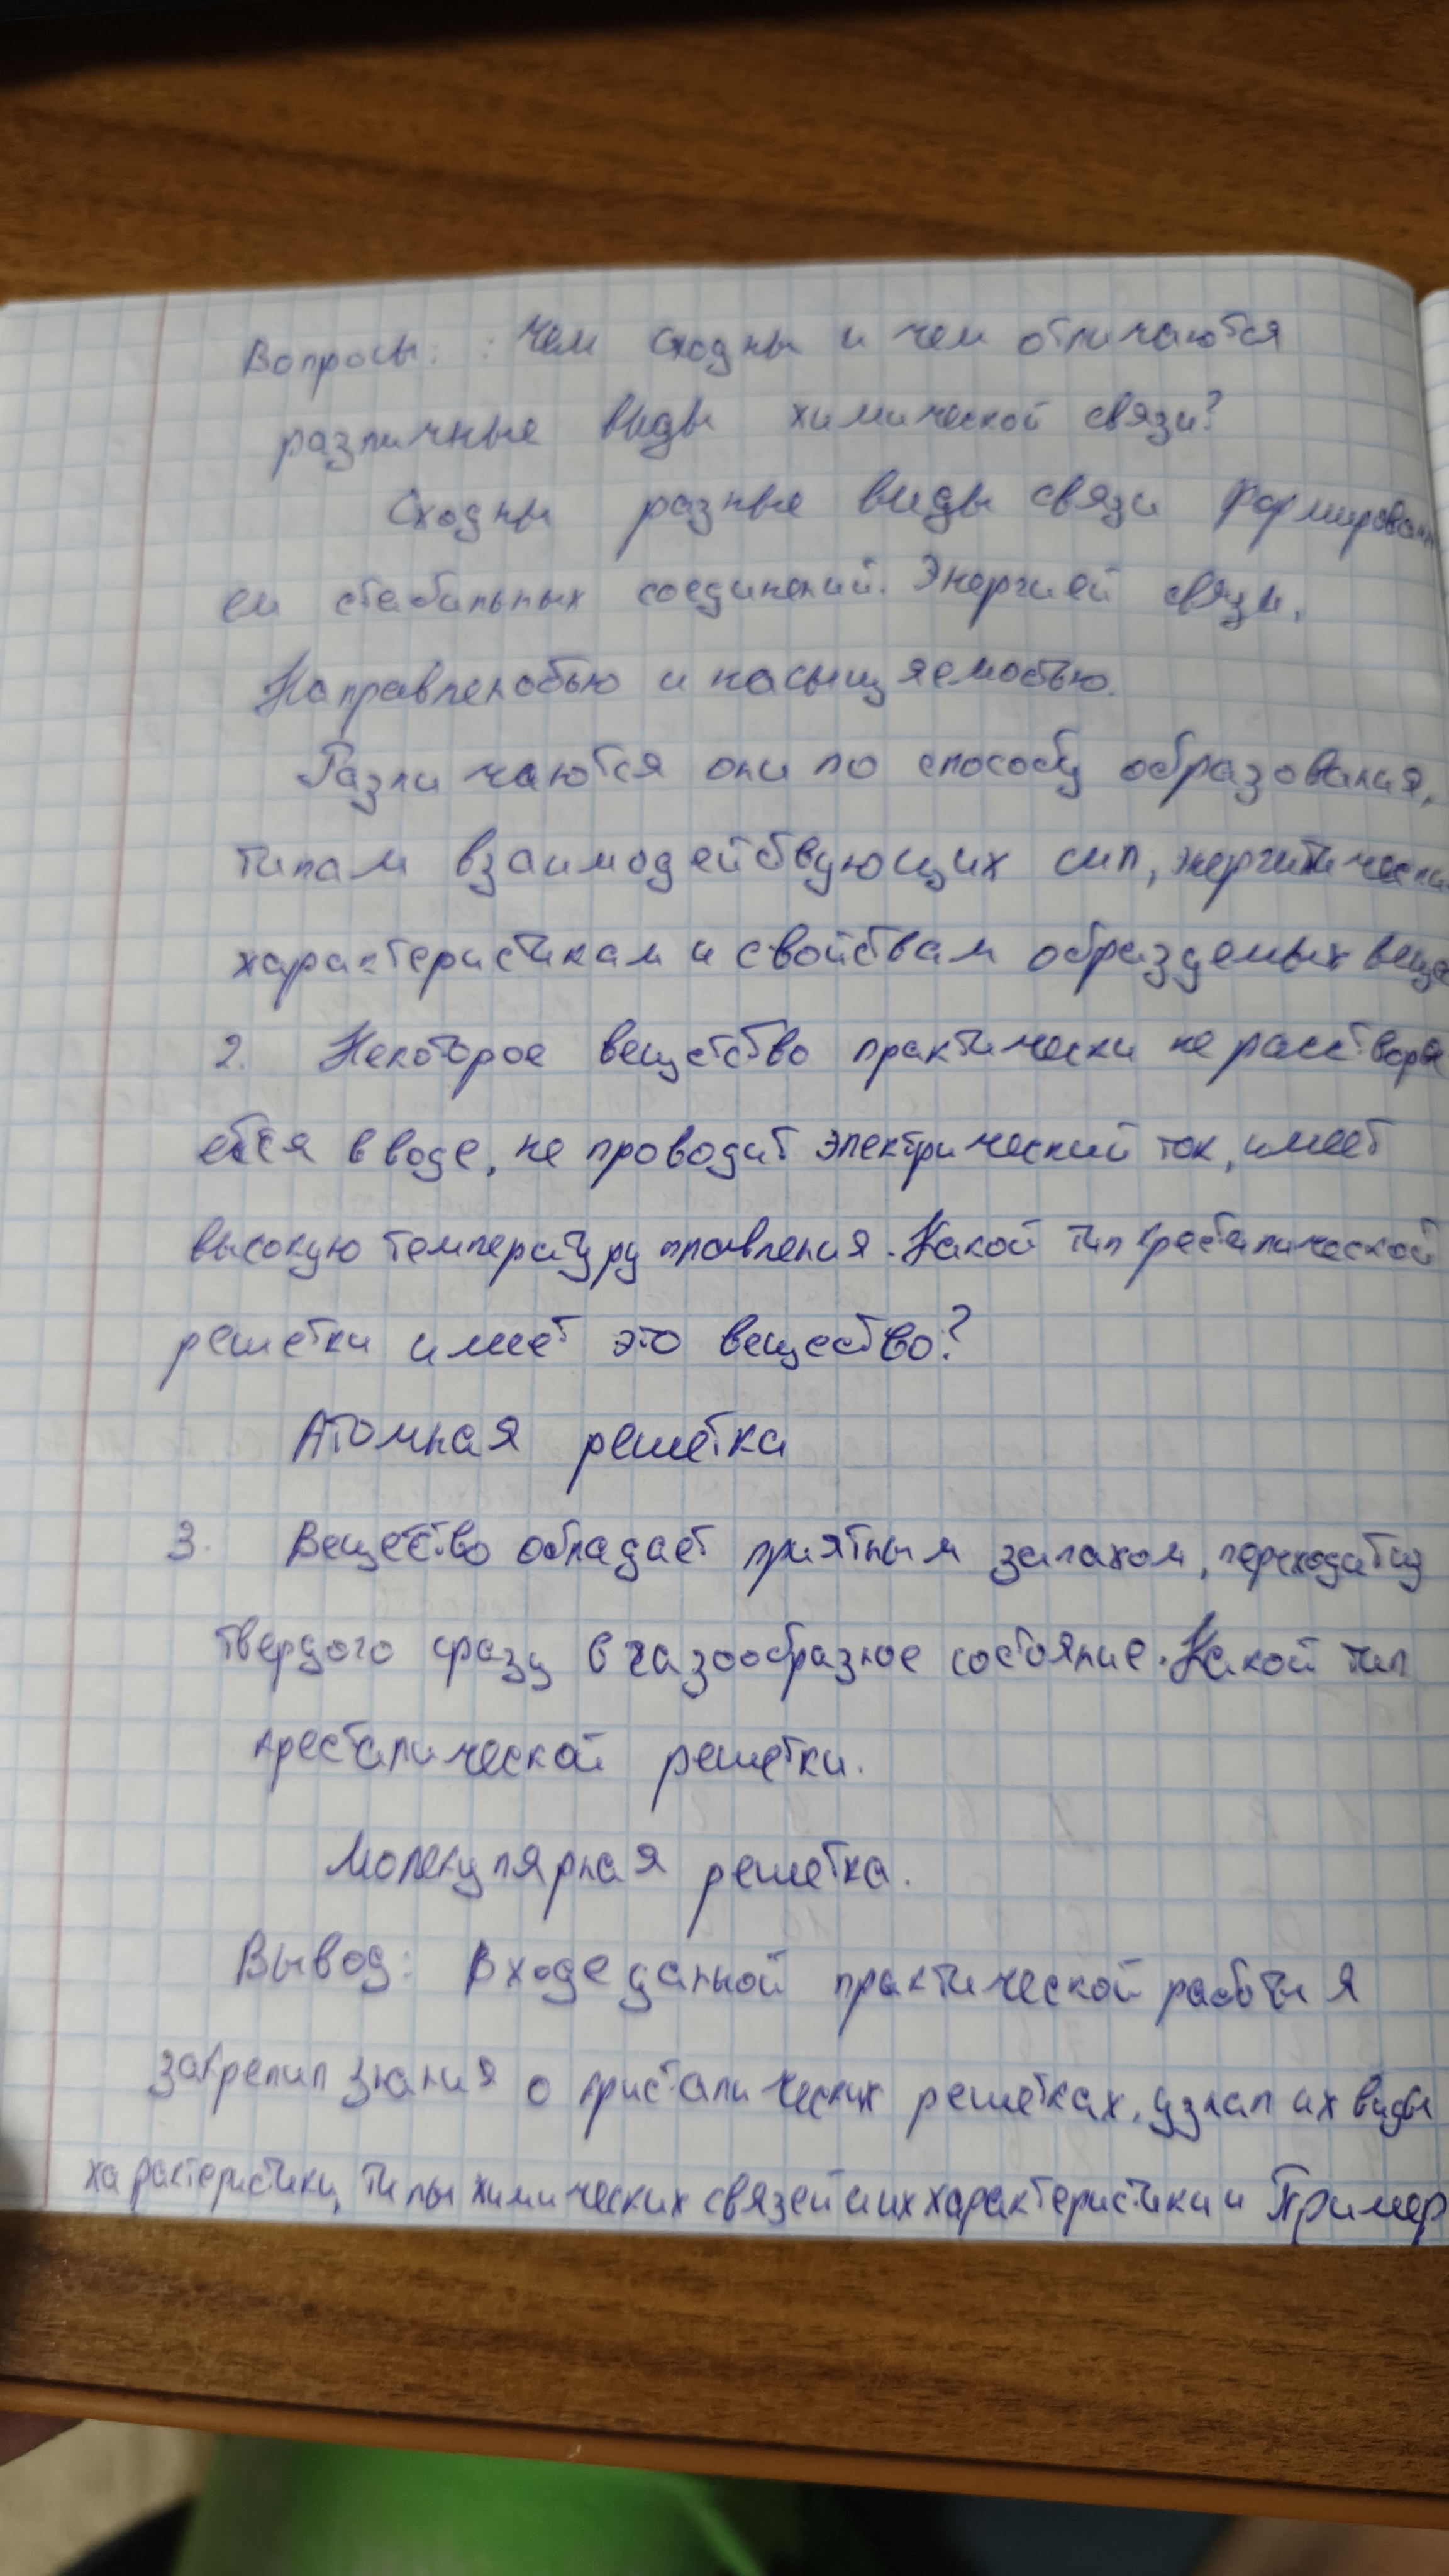 Вопросы: Чем сходны и чем отличаются
различные виды химической связи?
Сходны разные виды связи формирован
ем стабильных соединений. Энергией связи,
Направленостью и насыщяемостью.
Различаются они по способу образования,
типам взаимодействующих сил, энергитически
характеристикам и свойствам образуемых веще
2. Некоторое вещество практически не расствори
ется в воде, не проводит электрический ток, имеет
высокую температуру плавления. Какой тип кресталической
решетки имеет это вещество?
Атомная решетка
3. Вещество обладает приятным запахом, переходит из
твердого сразу в газообразное состояние. Какой тип
кресталической решетки.
Молекулярная решетка.
Вывод: В ходе даной практической работы я
закрепил знания о кристалических решетках, узнал их виды
характеристики, типы химических связей и их характеристики и Пример